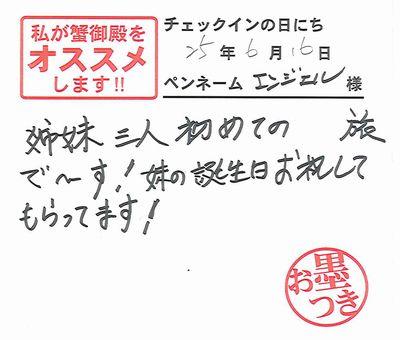 私が蟹御殿を
オススメ
します!!
チェックインの日にち
25年6月16日
ペンネーム エンジェル 様
姉妹 三人 初めての 旅
で〜す! 妹の誕生日お祝して
もらってます!
お墨つき